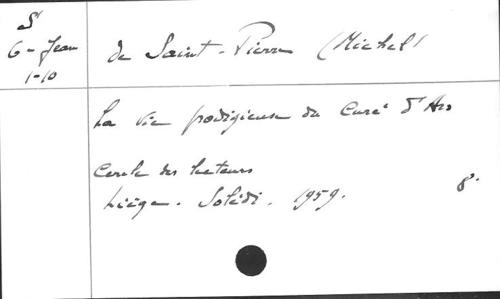 S
6-Jean
1-10
de Saint-Pierre (Michel)
La vie prodigieuse du Curé d'Ars
Cercle des lecteurs
Liège. Solédi. 1959. 8°